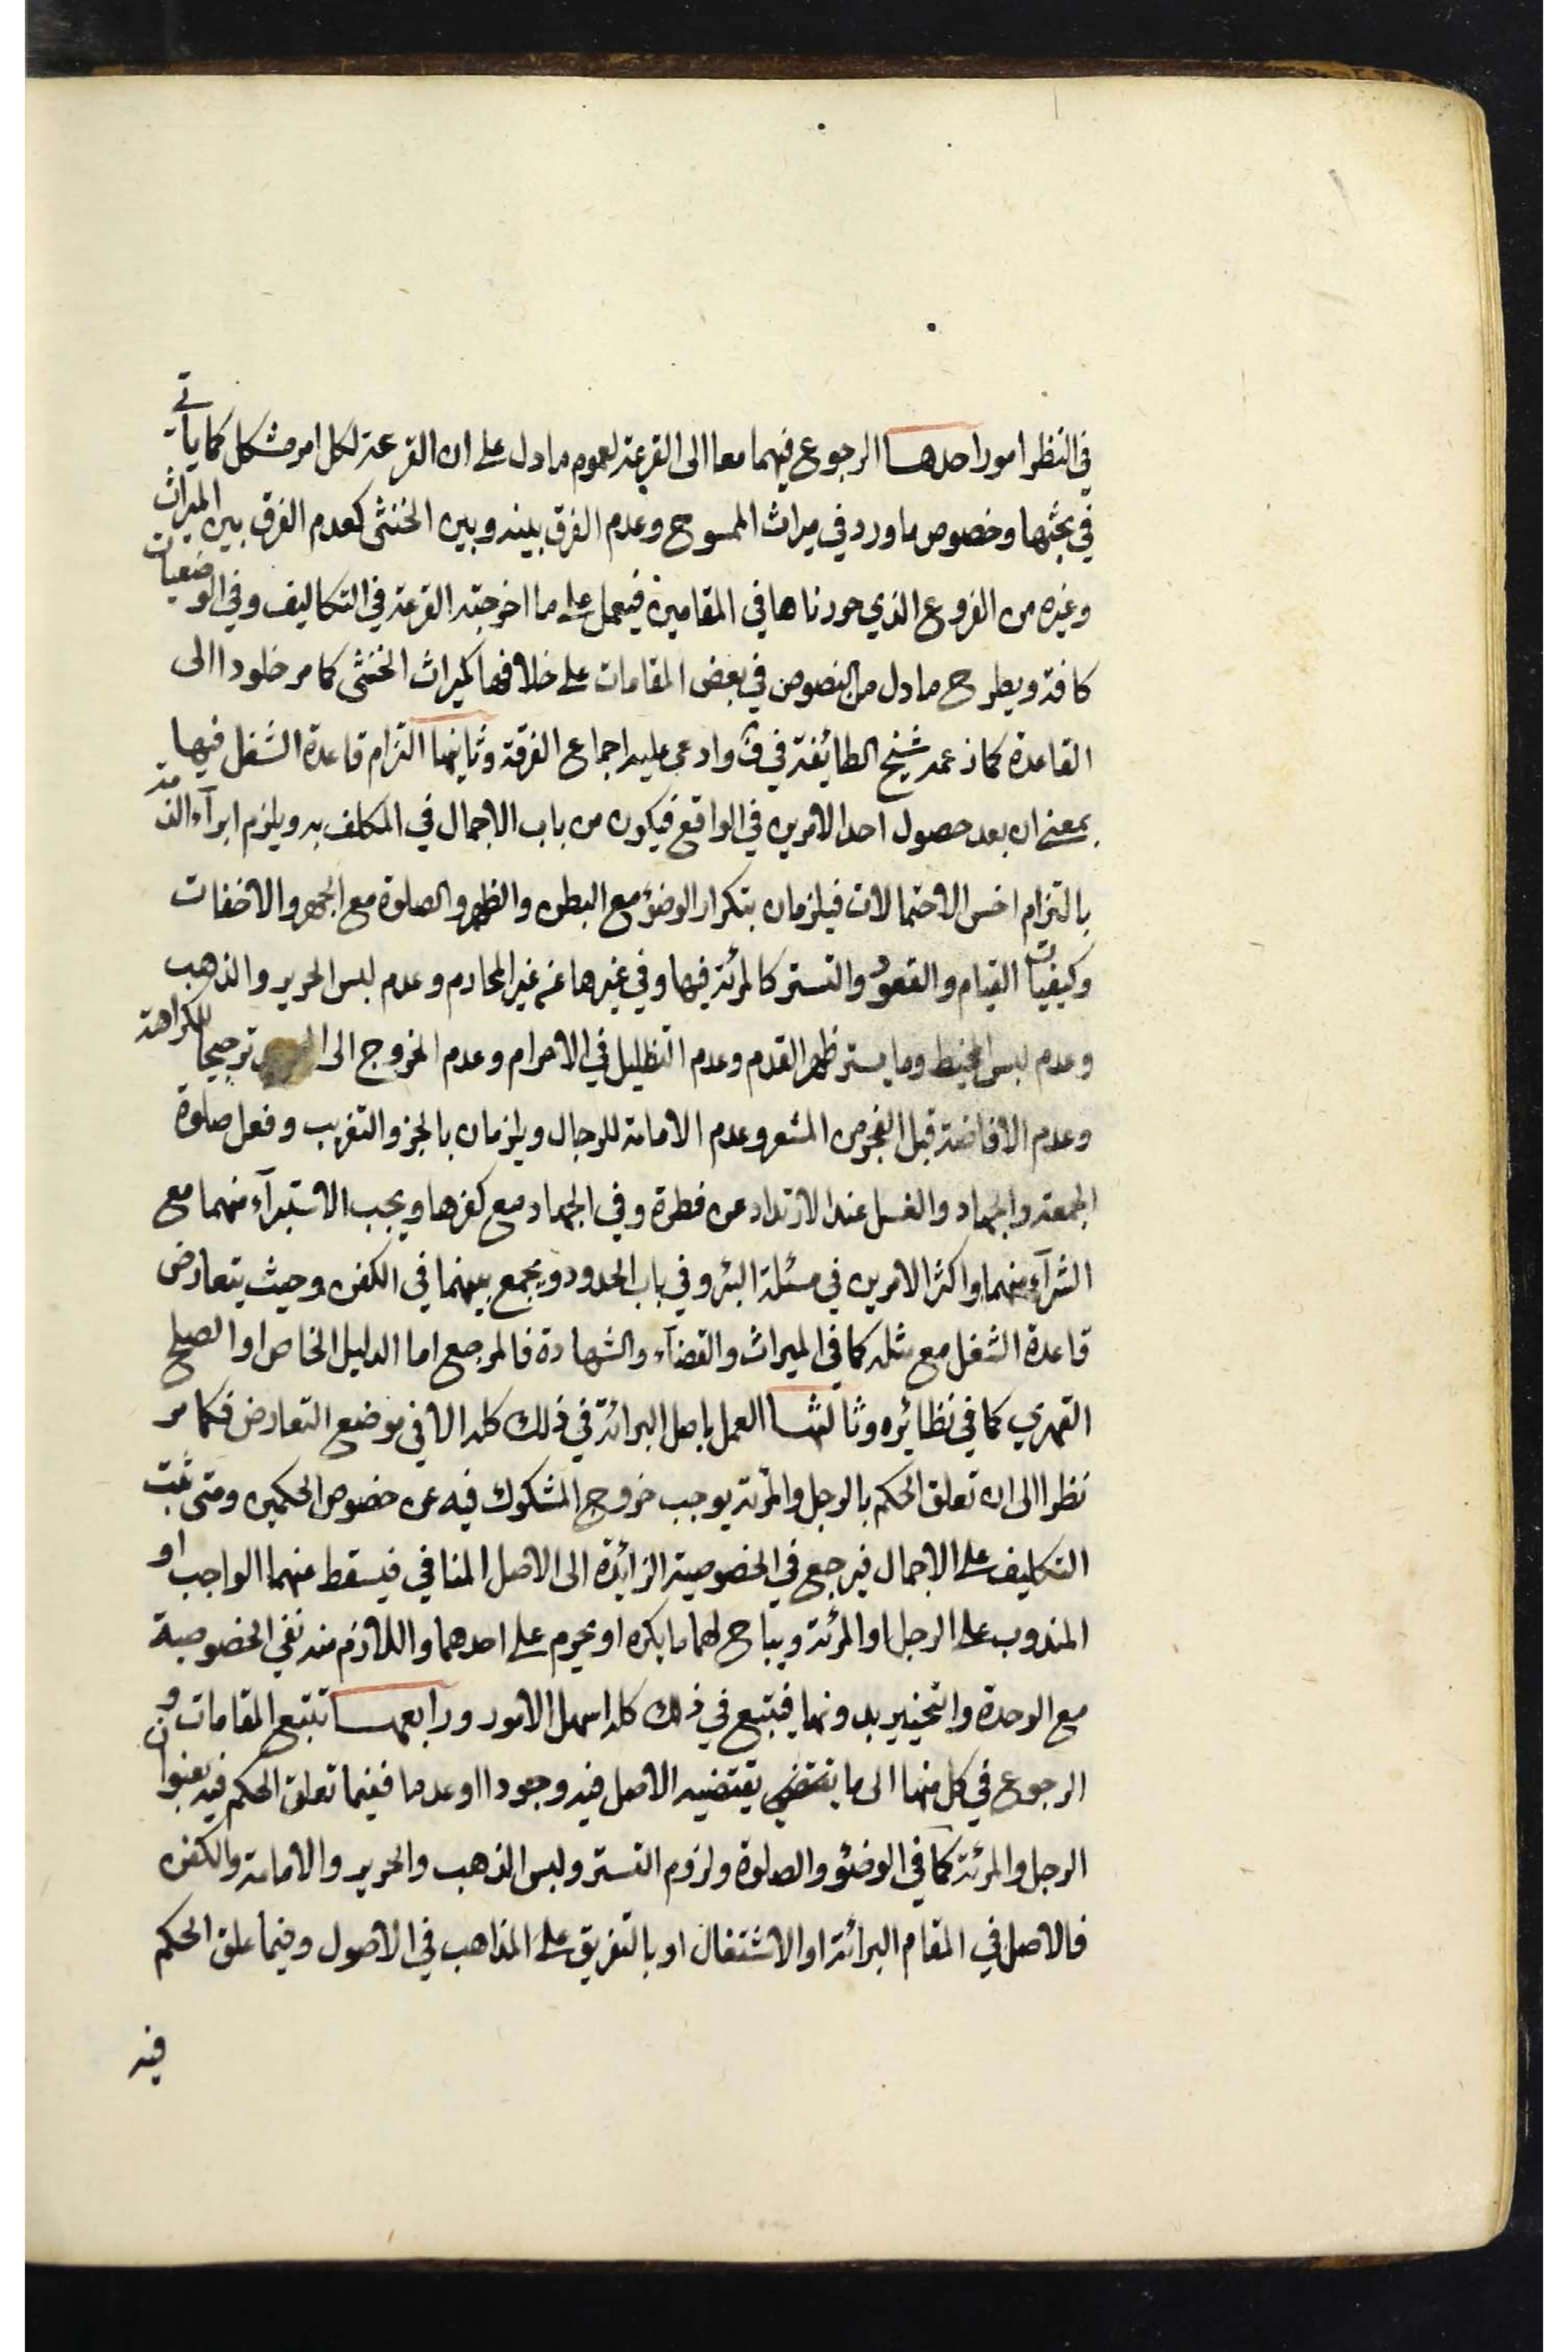 في النظر امور احدها الرجوع فيهما معا الى القرعة لعموم ما دل على ان القرعة لكل امر مشكل كما يأتي
في بحثها وخصوص ما ورد في ميراث الممسوح وعدم الفرق بينه وبين الخنثى كعدم الفرق بين الميراث
وغيره من الفروع الذي حررناها في المقامين فيعمل على ما اخرجته القرعة في التكاليف وفي الوضعيات
كافة ويطرح ما دل من النصوص في بعض المقامات على خلافها كميراث الخنثى كما مر خلودا الى
القاعدة كما زعمه شيخ الطائفة في ف وادعى عليه اجماع الفرقة وثانيها التزام قاعدة الشغل فيها
بمعنى ان بعد حصول احد الامرين في الواقع فيكون من باب الاجمال في المكلف به ويلزم ابرآء الذمة
بالتزام اخس الاحتمالات فيلزمان بتكرار الوضوء مع البطن والظهر والصلوة مع الجهر والاخفات
وكيفيات القيام والقعود والتستر كالمرئة فيها وفي غيرها عن غير المحارم وعدم لبس الحرير والذهب
وعدم لبس المخيط وما يستر ظهر القدم وعدم التظليل في الاحرام وعدم الخروج الى ترجيحا للكراهة
وعدم الافاضة قبل الفجر من المشعر وعدم الامامة للرجال ويلزمان بالجز والتغريب وفعل صلوة
الجمعة والجهاد والغسل عند الارتداد عن فطرة وفي الجهاد مع كفرها ويجب الاستبرآء منهما مع
الشرآء منهما واكثر الامرين في مسئلة البئر وفي باب الحدود ويجمع بينهما في الكفن وحيث يتعارض
قاعدة الشغل مع مثله كما في الميراث والقضآء والشهادة فالمرجع اما الدليل الخاص او الصلح
القهري كما في نظائره وثالثها العمل باصل البرائة في ذلك كله الا في موضع التعارض فكما مر
نظرا الى ان تعلق الحكم بالرجل والمرئة يوجب خروج المشكوك فيه عن خصوص الحكمين ومتى ثبت
التكليف على الاجمال فيرجع في الخصوصية الزائدة الى الاصل المنافي فيسقط عنهما الواجب او
المندوب على الرجل او المرئة ويباح لهما ما يكره او يحرم على احدهما واللازم منه نفي الخصوصية
مع الوحدة والتخيير بدونها فيتبع في ذلك كله اسهل الامور ورابعها تتبع المقامات و
الرجوع في كل منها الى ما يقتضي يقتضيه الاصل فيه وجودا او عدما ففيما تعلق الحكم فيه بعنوان
الرجل والمرئة كما في الوضوء والصلوة ولزوم التستر ولبس الذهب والحرير والامامة والكفن
فالاصل في المقام البرائة او الاشتغال او بالتفريق على المذاهب في الاصول وفيما علق الحكم
فيه